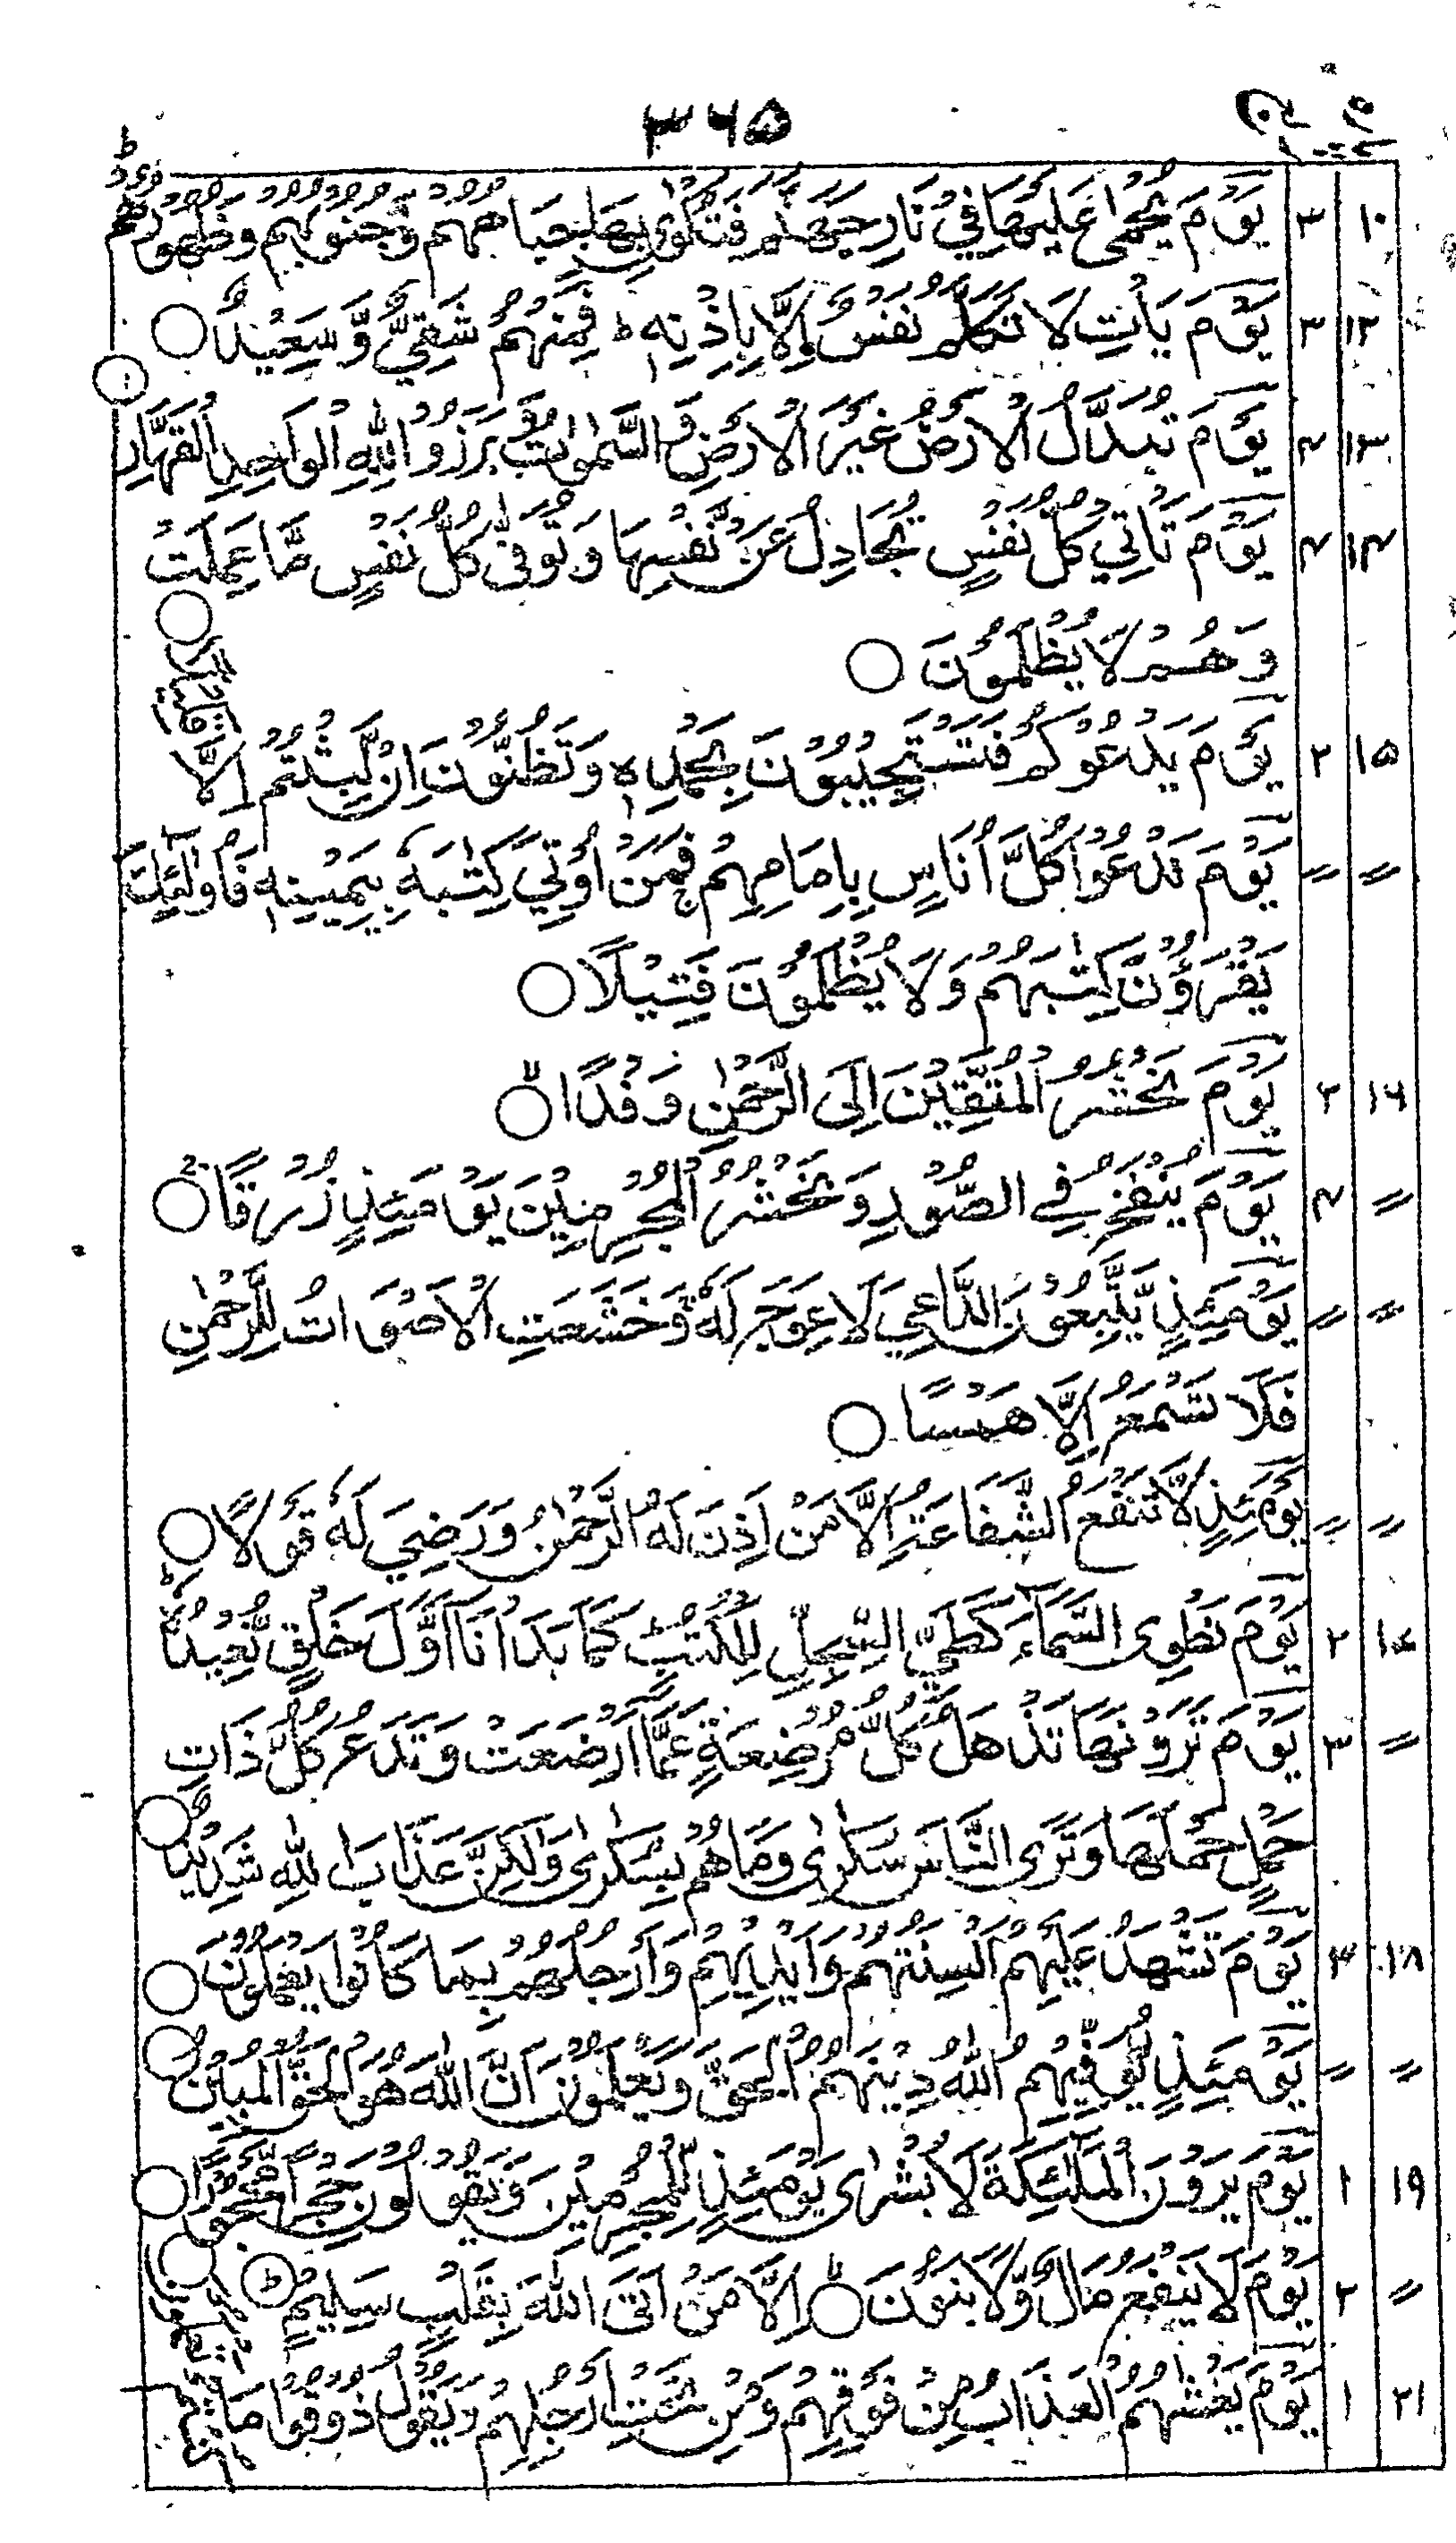 ۳۶۵
۱۰ ۳ يَوْمَ يُحْمٰى عَلَيْهَا فِيْ نَارِ جَهَنَّمَ فَتُكْوٰى بِهَا جِبَاهُهُمْ وَجُنُوْبُهُمْ وَظُهُوْرُهُمْ ط
۱۲ ۳ يَوْمَ يَأْتِ لَا تَكَلَّمُ نَفْسٌ اِلَّا بِاِذْنِهٖ ط فَمِنْهُمْ شَقِيٌّ وَّسَعِيْدٌ ○
۱۳ ۴ يَوْمَ تُبَدَّلُ الْاَرْضُ غَيْرَ الْاَرْضِ وَالسَّمٰوٰتُ وَبَرَزُوْا لِلّٰهِ الْوَاحِدِ الْقَهَّارِ ○
۱۴ ۴ يَوْمَ تَاْتِيْ كُلُّ نَفْسٍ تُجَادِلُ عَنْ نَّفْسِهَا وَتُوَفّٰى كُلُّ نَفْسٍ مَّا عَمِلَتْ
وَهُمْ لَا يُظْلَمُوْنَ ○
۱۵ ۲ يَوْمَ يَدْعُوْكُمْ فَتَسْتَجِيْبُوْنَ بِحَمْدِهٖ وَتَظُنُّوْنَ اِنْ لَّبِثْتُمْ اِلَّا قَلِيْلًا ○
〃 〃 يَوْمَ نَدْعُوْا كُلَّ اُنَاسٍ بِاِمَامِهِمْ ج فَمَنْ اُوْتِيَ كِتٰبَهٗ بِيَمِيْنِهٖ فَاُولٰٓئِكَ
يَقْرَءُوْنَ كِتٰبَهُمْ وَلَا يُظْلَمُوْنَ فَتِيْلًا ○
۱۶ ۲ يَوْمَ نَحْشُرُ الْمُتَّقِيْنَ اِلَى الرَّحْمٰنِ وَفْدًا ○
〃 ۴ يَوْمَ يُنْفَخُ فِي الصُّوْرِ وَنَحْشُرُ الْمُجْرِمِيْنَ يَوْمَئِذٍ زُرْقًا ○
〃 〃 يَوْمَئِذٍ يَّتَّبِعُوْنَ الدَّاعِيَ لَا عِوَجَ لَهٗ وَخَشَعَتِ الْاَصْوَاتُ لِلرَّحْمٰنِ
فَلَا تَسْمَعُ اِلَّا هَمْسًا ○
〃 〃 يَوْمَئِذٍ لَّا تَنْفَعُ الشَّفَاعَةُ اِلَّا مَنْ اَذِنَ لَهُ الرَّحْمٰنُ وَرَضِيَ لَهٗ قَوْلًا ○
۱۷ ۲ يَوْمَ نَطْوِى السَّمَآءَ كَطَيِّ السِّجِلِّ لِلْكُتُبِ ط كَمَا بَدَاْنَا اَوَّلَ خَلْقٍ نُّعِيْدُهٗ ط
〃 ۳ يَوْمَ تَرَوْنَهَا تَذْهَلُ كُلُّ مُرْضِعَةٍ عَمَّا اَرْضَعَتْ وَتَضَعُ كُلُّ ذَاتِ
حَمْلٍ حَمْلَهَا وَتَرَى النَّاسَ سُكٰرٰى وَمَا هُمْ بِسُكٰرٰى وَلٰكِنَّ عَذَابَ اللّٰهِ شَدِيْدٌ ○
۱۸ ۳ يَوْمَ تَشْهَدُ عَلَيْهِمْ اَلْسِنَتُهُمْ وَاَيْدِيْهِمْ وَاَرْجُلُهُمْ بِمَا كَانُوْا يَعْمَلُوْنَ ○
〃 〃 يَوْمَئِذٍ يُّوَفِّيْهِمُ اللّٰهُ دِيْنَهُمُ الْحَقَّ وَيَعْلَمُوْنَ اَنَّ اللّٰهَ هُوَ الْحَقُّ الْمُبِيْنُ ○
۱۹ ۱ يَوْمَ يَرَوْنَ الْمَلٰٓئِكَةَ لَا بُشْرٰى يَوْمَئِذٍ لِّلْمُجْرِمِيْنَ وَيَقُوْلُوْنَ حِجْرًا مَّحْجُوْرًا ○
〃 ۲ يَوْمَ لَا يَنْفَعُ مَالٌ وَّلَا بَنُوْنَ ○ اِلَّا مَنْ اَتَى اللّٰهَ بِقَلْبٍ سَلِيْمٍ ○
۲۱ ۱ يَوْمَ يَغْشٰهُمُ الْعَذَابُ مِنْ فَوْقِهِمْ وَمِنْ تَحْتِ اَرْجُلِهِمْ وَيَقُوْلُ ذُوْقُوْا مَا